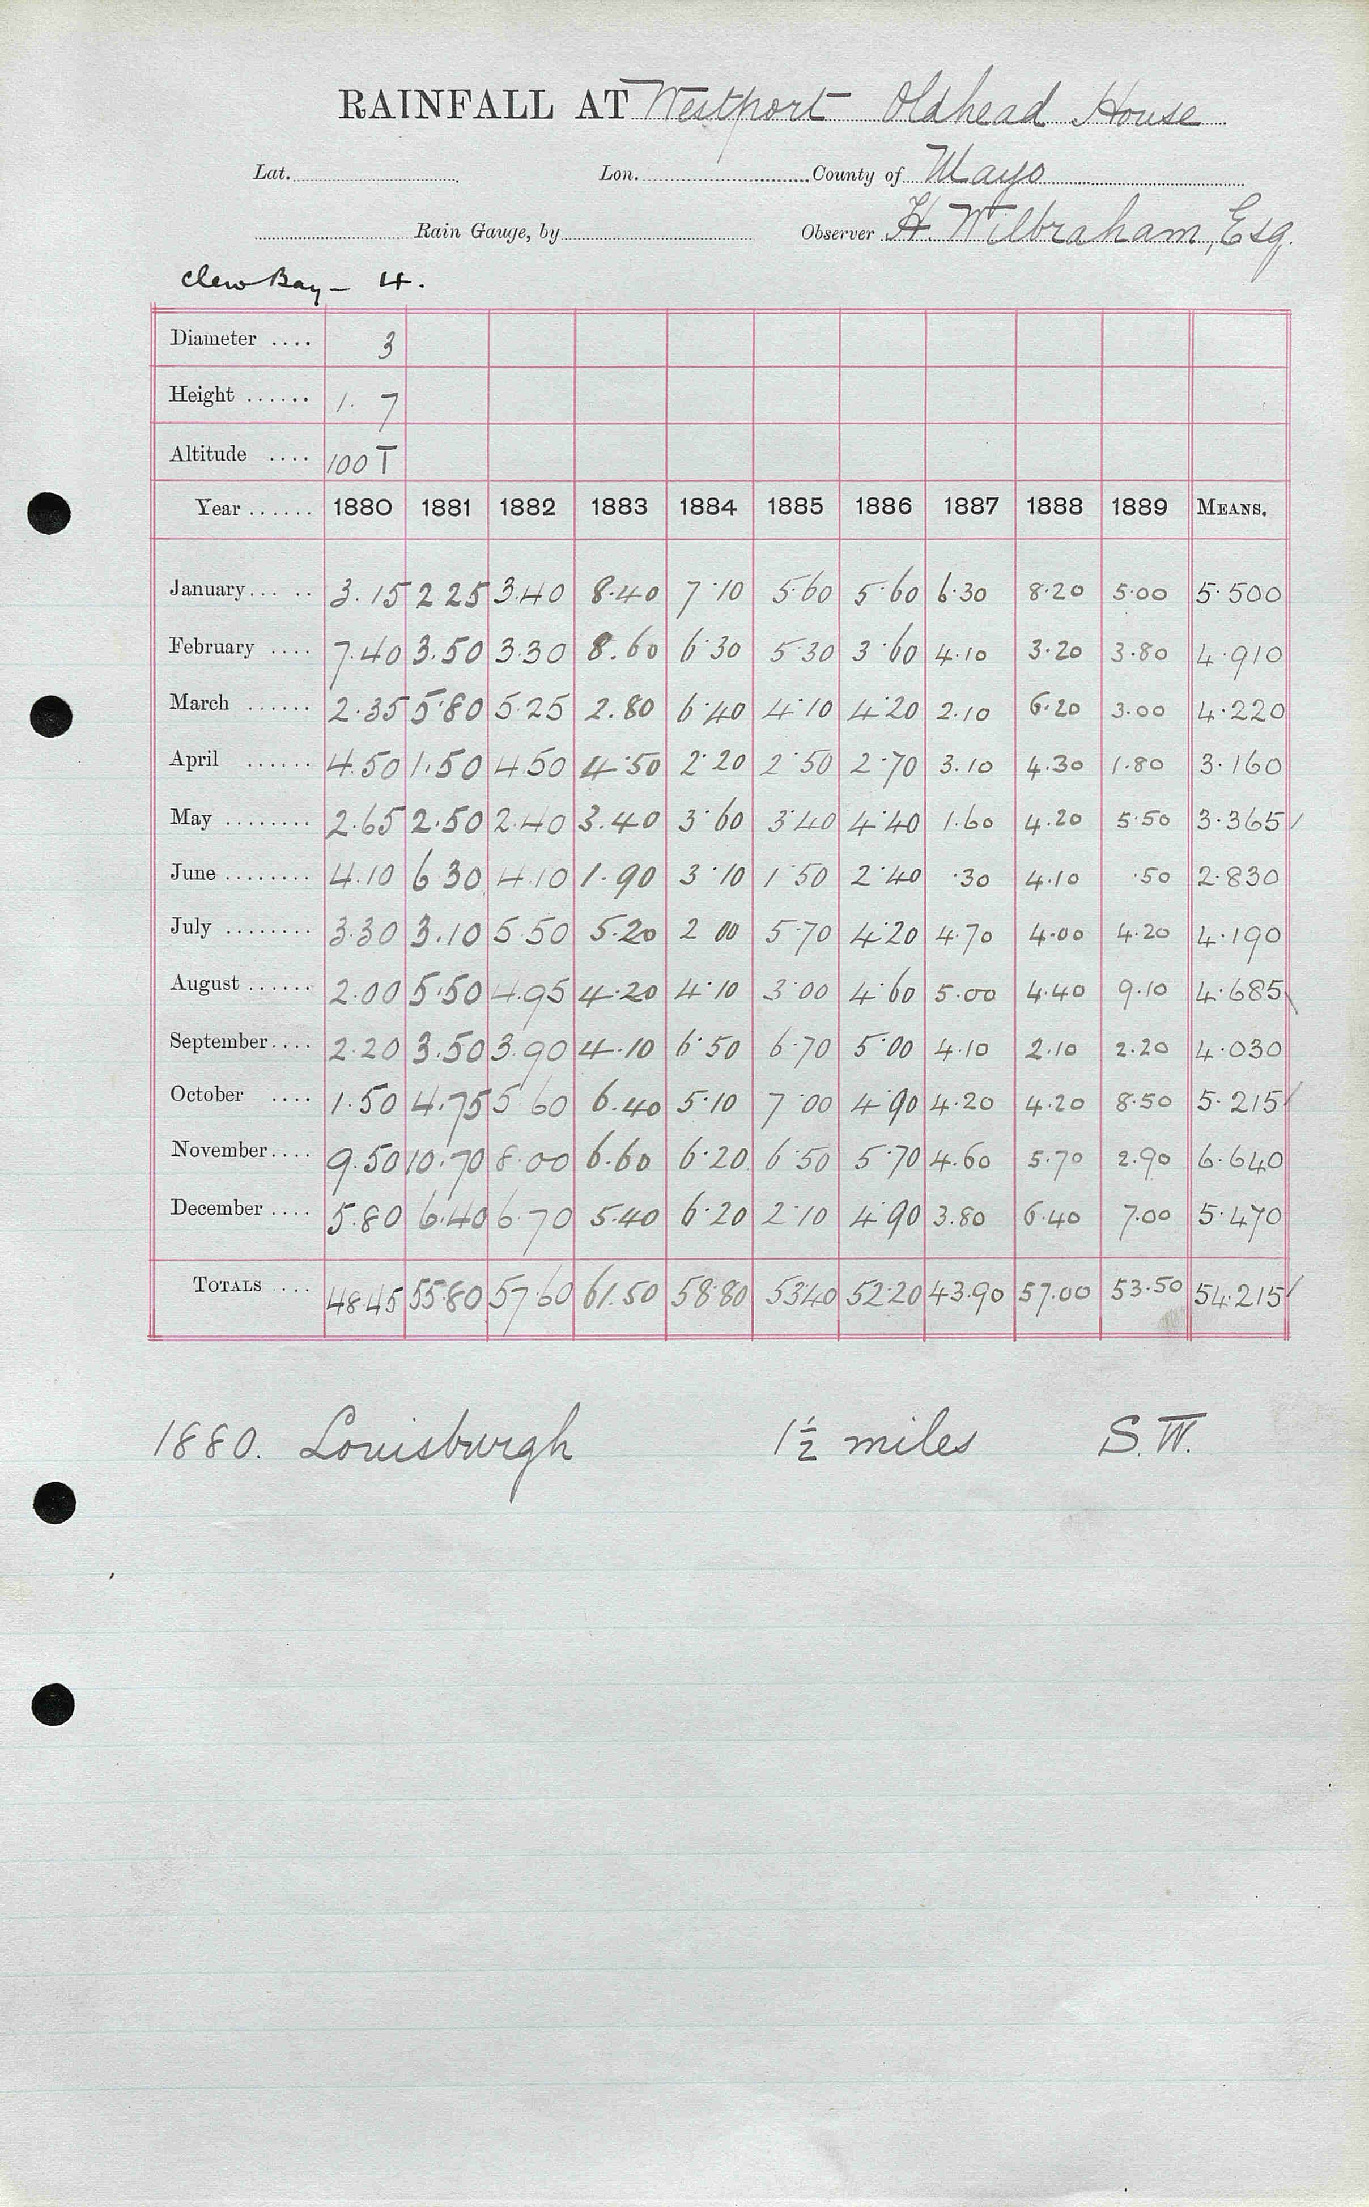 RAINFALL AT Westport Oldhead House
Lat. Lon. County of Mayo
Rain Gauge, by Observer H. Wilbraham, Esq.
Clew Bay – 4.
Diameter .... 3
Height ...... 1. 7
Altitude .... 100 T
Year ...... 1880 1881 1882 1883 1884 1885 1886 1887 1888 1889 MEANS.
January ... .. 3.15 2 25 3.40 8.40 7.10 5.60 5.60 6.30 8.20 5.00 5.500
February .... 7.40 3.50 3.30 8.60 6.30 5.30 3.60 4.10 3.20 3.80 4.910
March ...... 2.35 5.80 5.25 2.80 6.40 4.10 4.20 2.10 6.20 3.00 4.220
April ...... 4.50 1.50 4.50 4.50 2.20 2.50 2.70 3.10 4.30 1.80 3.160
May ........ 2.65 2.50 2.40 3.40 3.60 3.40 4.40 1.60 4.20 5.50 3.365
June ........ 4.10 6 30 4.10 1.90 3.10 1.50 2.40 .30 4.10 .50 2.830
July ........ 3.30 3.10 5.50 5.20 2 00 5.70 4.20 4.70 4.00 4.20 4.190
August ...... 2.00 5.50 4.95 4.20 4.10 3.00 4.60 5.00 4.40 9.10 4.685
September .... 2.20 3.50 3.90 4.10 6.50 6.70 5.00 4.10 2.10 2.20 4.030
October .... 1.50 4.75 5 60 6.40 5.10 7 00 4.90 4.20 4.20 8.50 5.215
November .... 9.50 10.70 8.00 6.60 6.20 6.50 5.70 4.60 5.70 2.90 6.640
December .... 5.80 6.40 6.70 5.40 6.20 2.10 4.90 3.80 6.40 7.00 5.470
TOTALS ... 48.45 55.80 57.60 61.50 58.80 53.40 52.20 43.90 57.00 53.50 54.215
1880. Louisburgh 1½ miles S.W.